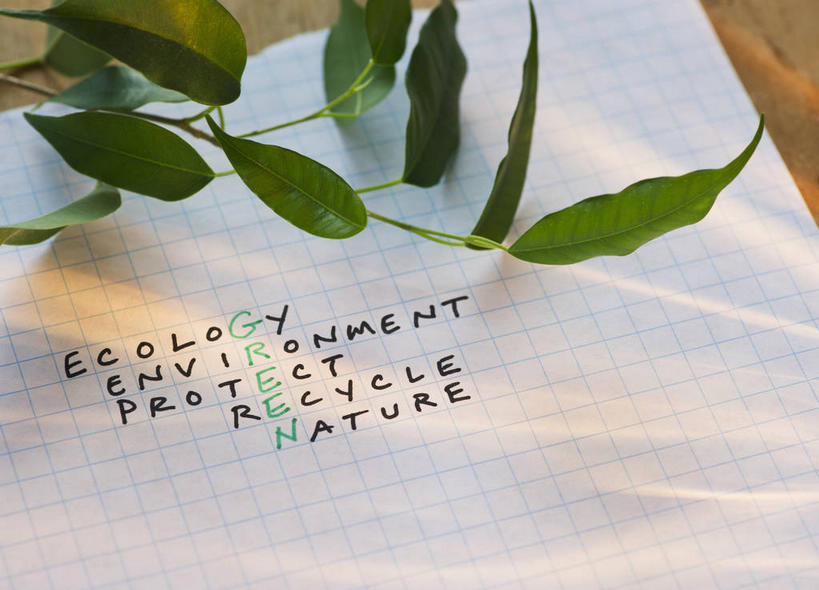 ECOLOGY
ENVIRONMENT
PROTECT
RECYCLE
NATURE